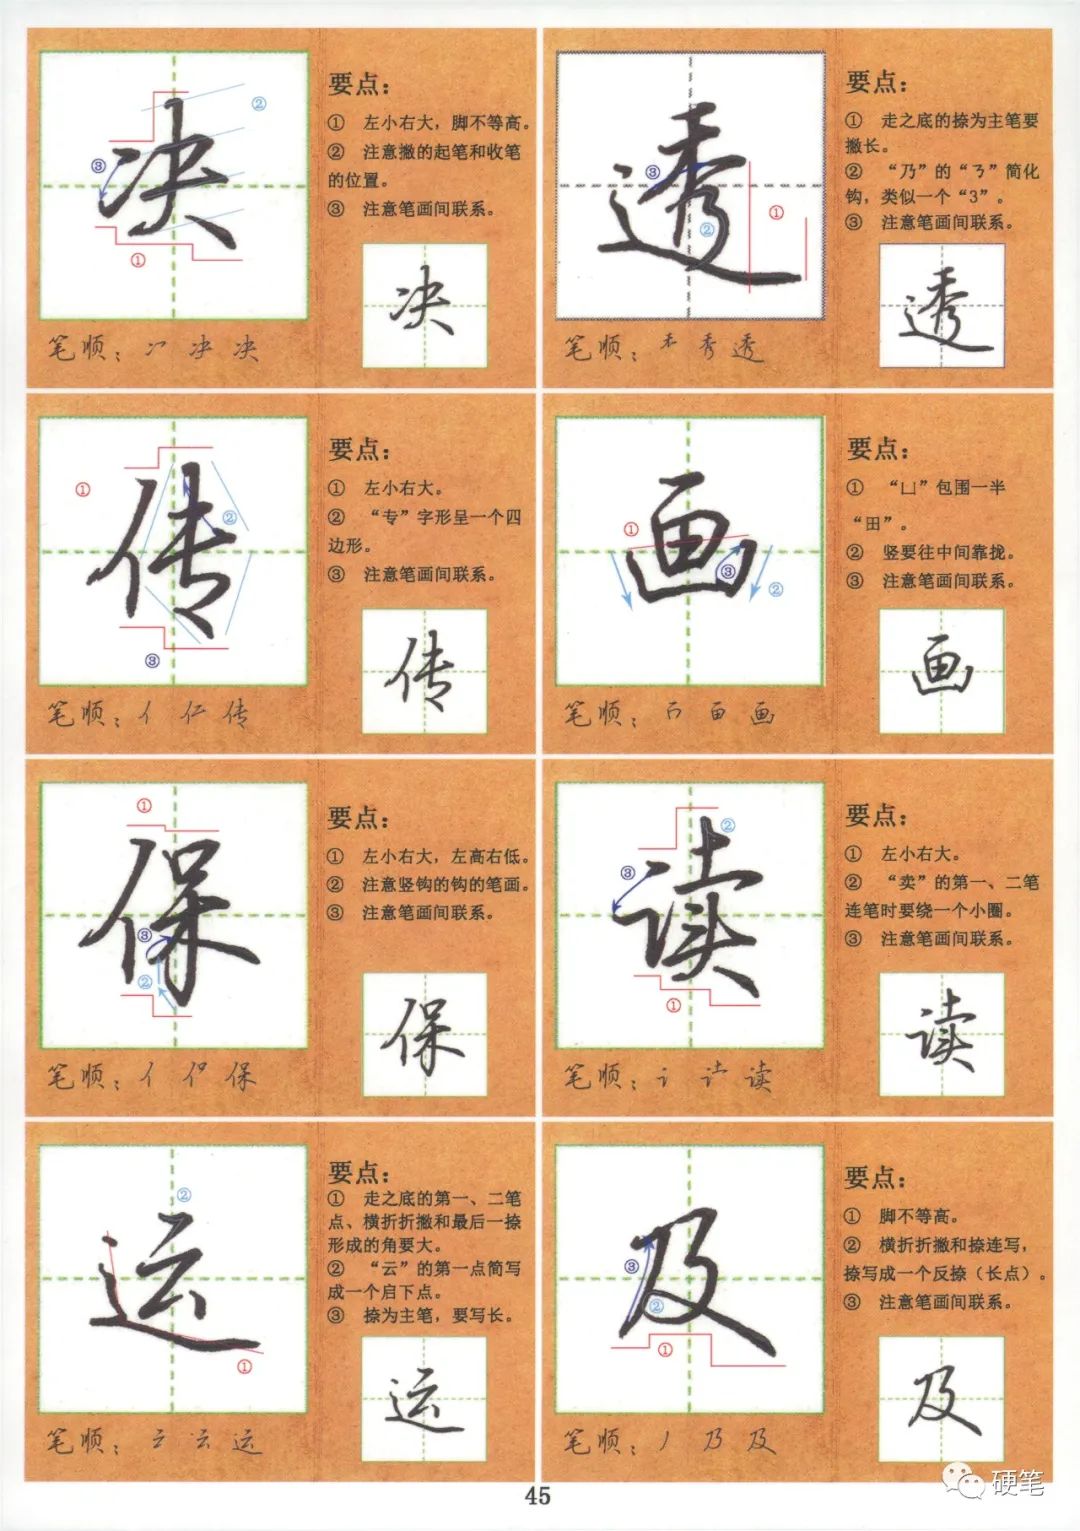 决
要点：
① 左小右大，脚不等高。
② 注意撇的起笔和收笔
的位置。
③ 注意笔画间联系。
决
③
②
①
笔顺：冫 决 决
透
要点：
① 走之底的捺为主笔要
撇长。
② “乃”的“ㄋ”简化
钩，类似一个“3”。
③ 注意笔画间联系。
透
③
②
①
笔顺：禾 秀 透
传
要点：
① 左小右大。
② “专”字形呈一个四
边形。
③ 注意笔画间联系。
传
①
②
③
笔顺：亻 仁 传
画
要点：
① “凵”包围一半
“田”。
② 竖要往中间靠拢。
③ 注意笔画间联系。
画
①
③
②
笔顺：画
保
要点：
① 左小右大，左高右低。
② 注意竖钩的钩的笔画。
③ 注意笔画间联系。
保
①
③
②
笔顺：亻 保
读
要点：
① 左小右大。
② “卖”的第一、二笔
连笔时要绕一个小圈。
③ 注意笔画间联系。
读
②
③
①
笔顺：讠 读
运
要点：
① 走之底的第一、二笔
点、横折折撇和最后一捺
形成的角要大。
② “云”的第一点简写
成一个启下点。
③ 捺为主笔，要写长。
运
②
①
笔顺：二 云 运
及
要点：
① 脚不等高。
② 横折折撇和捺连写，
捺写成一个反捺（长点）。
③ 注意笔画间联系。
及
③
②
①
笔顺：丿 乃 及
45
硬笔